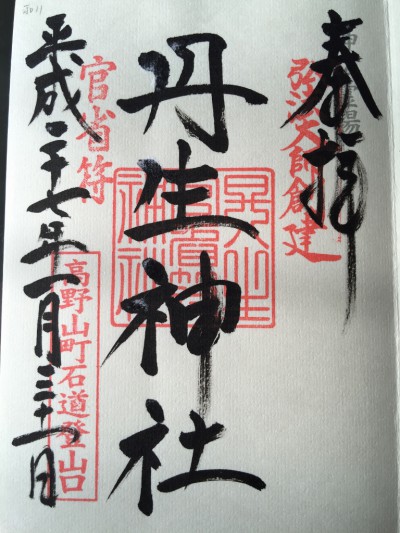 奉拝
弘法大師創建
丹生神社
官省符
平成二十七年一月三十一日
高野山町石道登山口